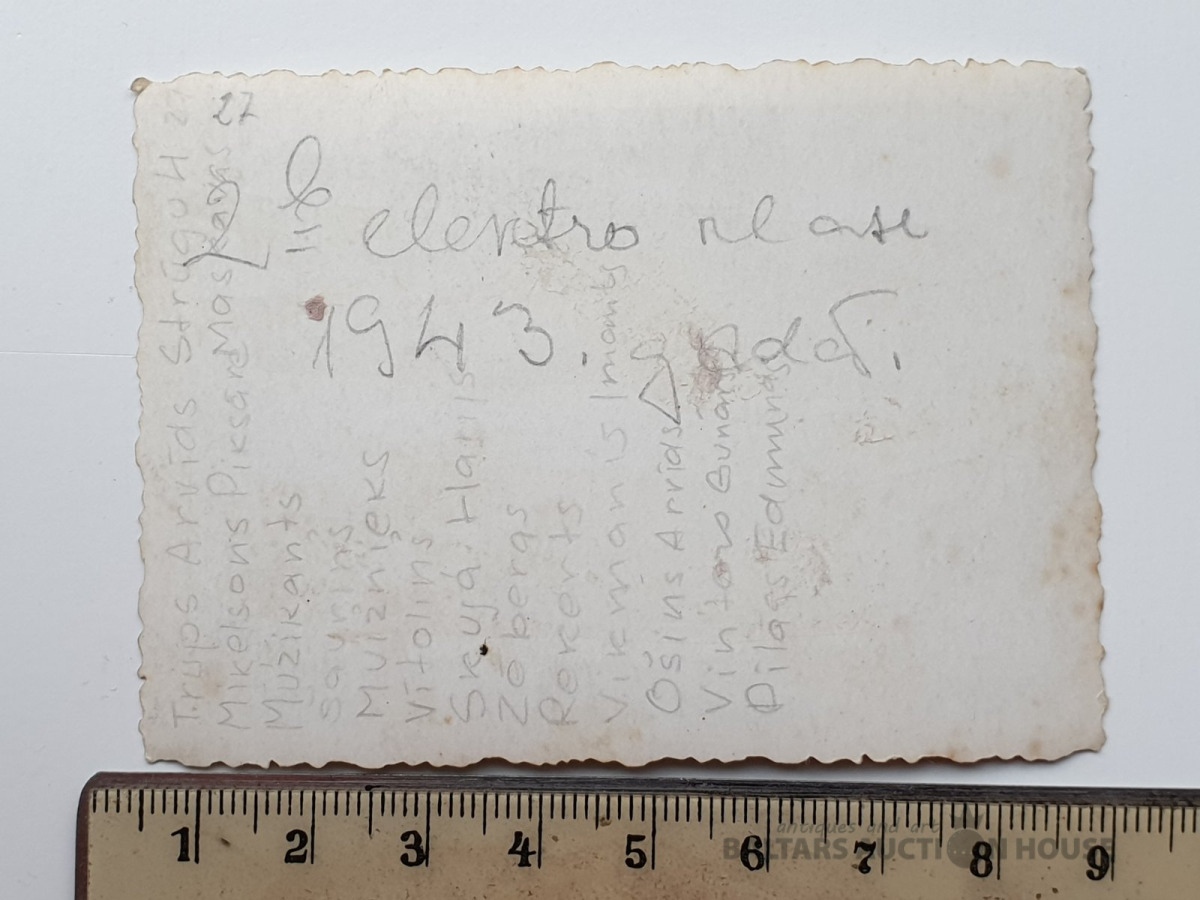 27
II b elektro klase
1943. gadā.
Trups Arvids Strigu 4
Mikelsons Piksard Mas
Muzikants
Sauriņš
Muižnieks
Vitolins
Skujā Harijs
Zēbergs
Rekents
Vikmanis Imants
Ošiņš Arvids
Vintars Gunars
Edmunds
1 2 3 4 5 6 7 8 9
antiques and art
BALTARS AUCTION HOUSE